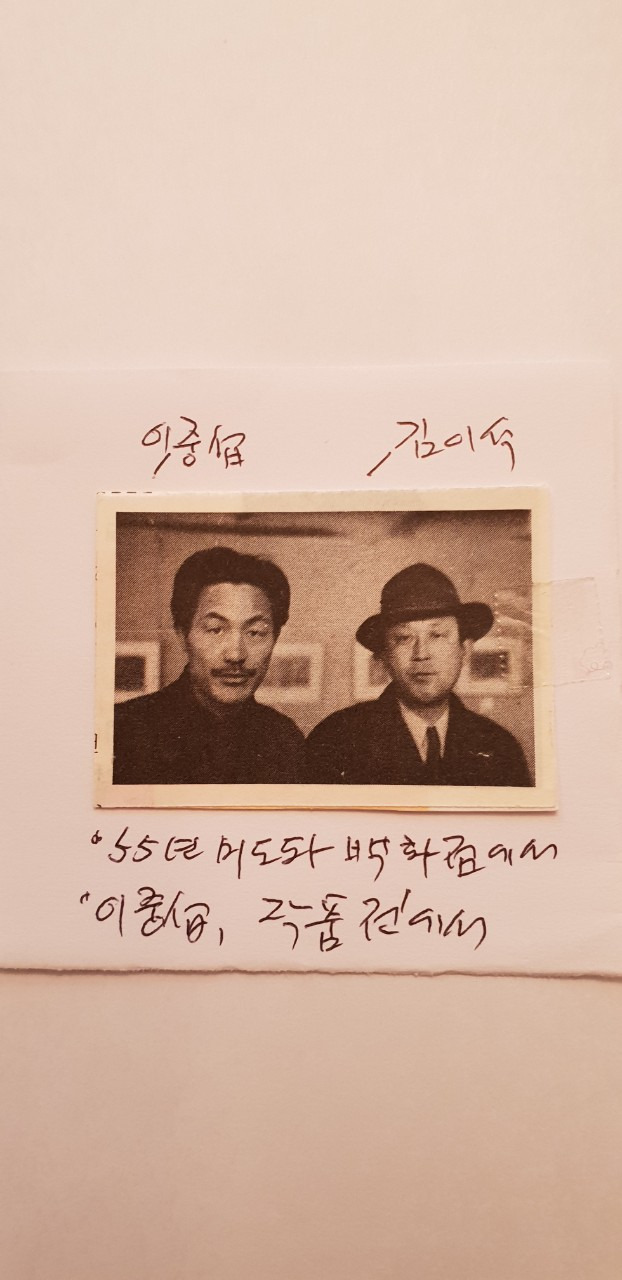 이중섭 김이석
'55년 미도파 백화점에서
'이중섭, 작품전'에서